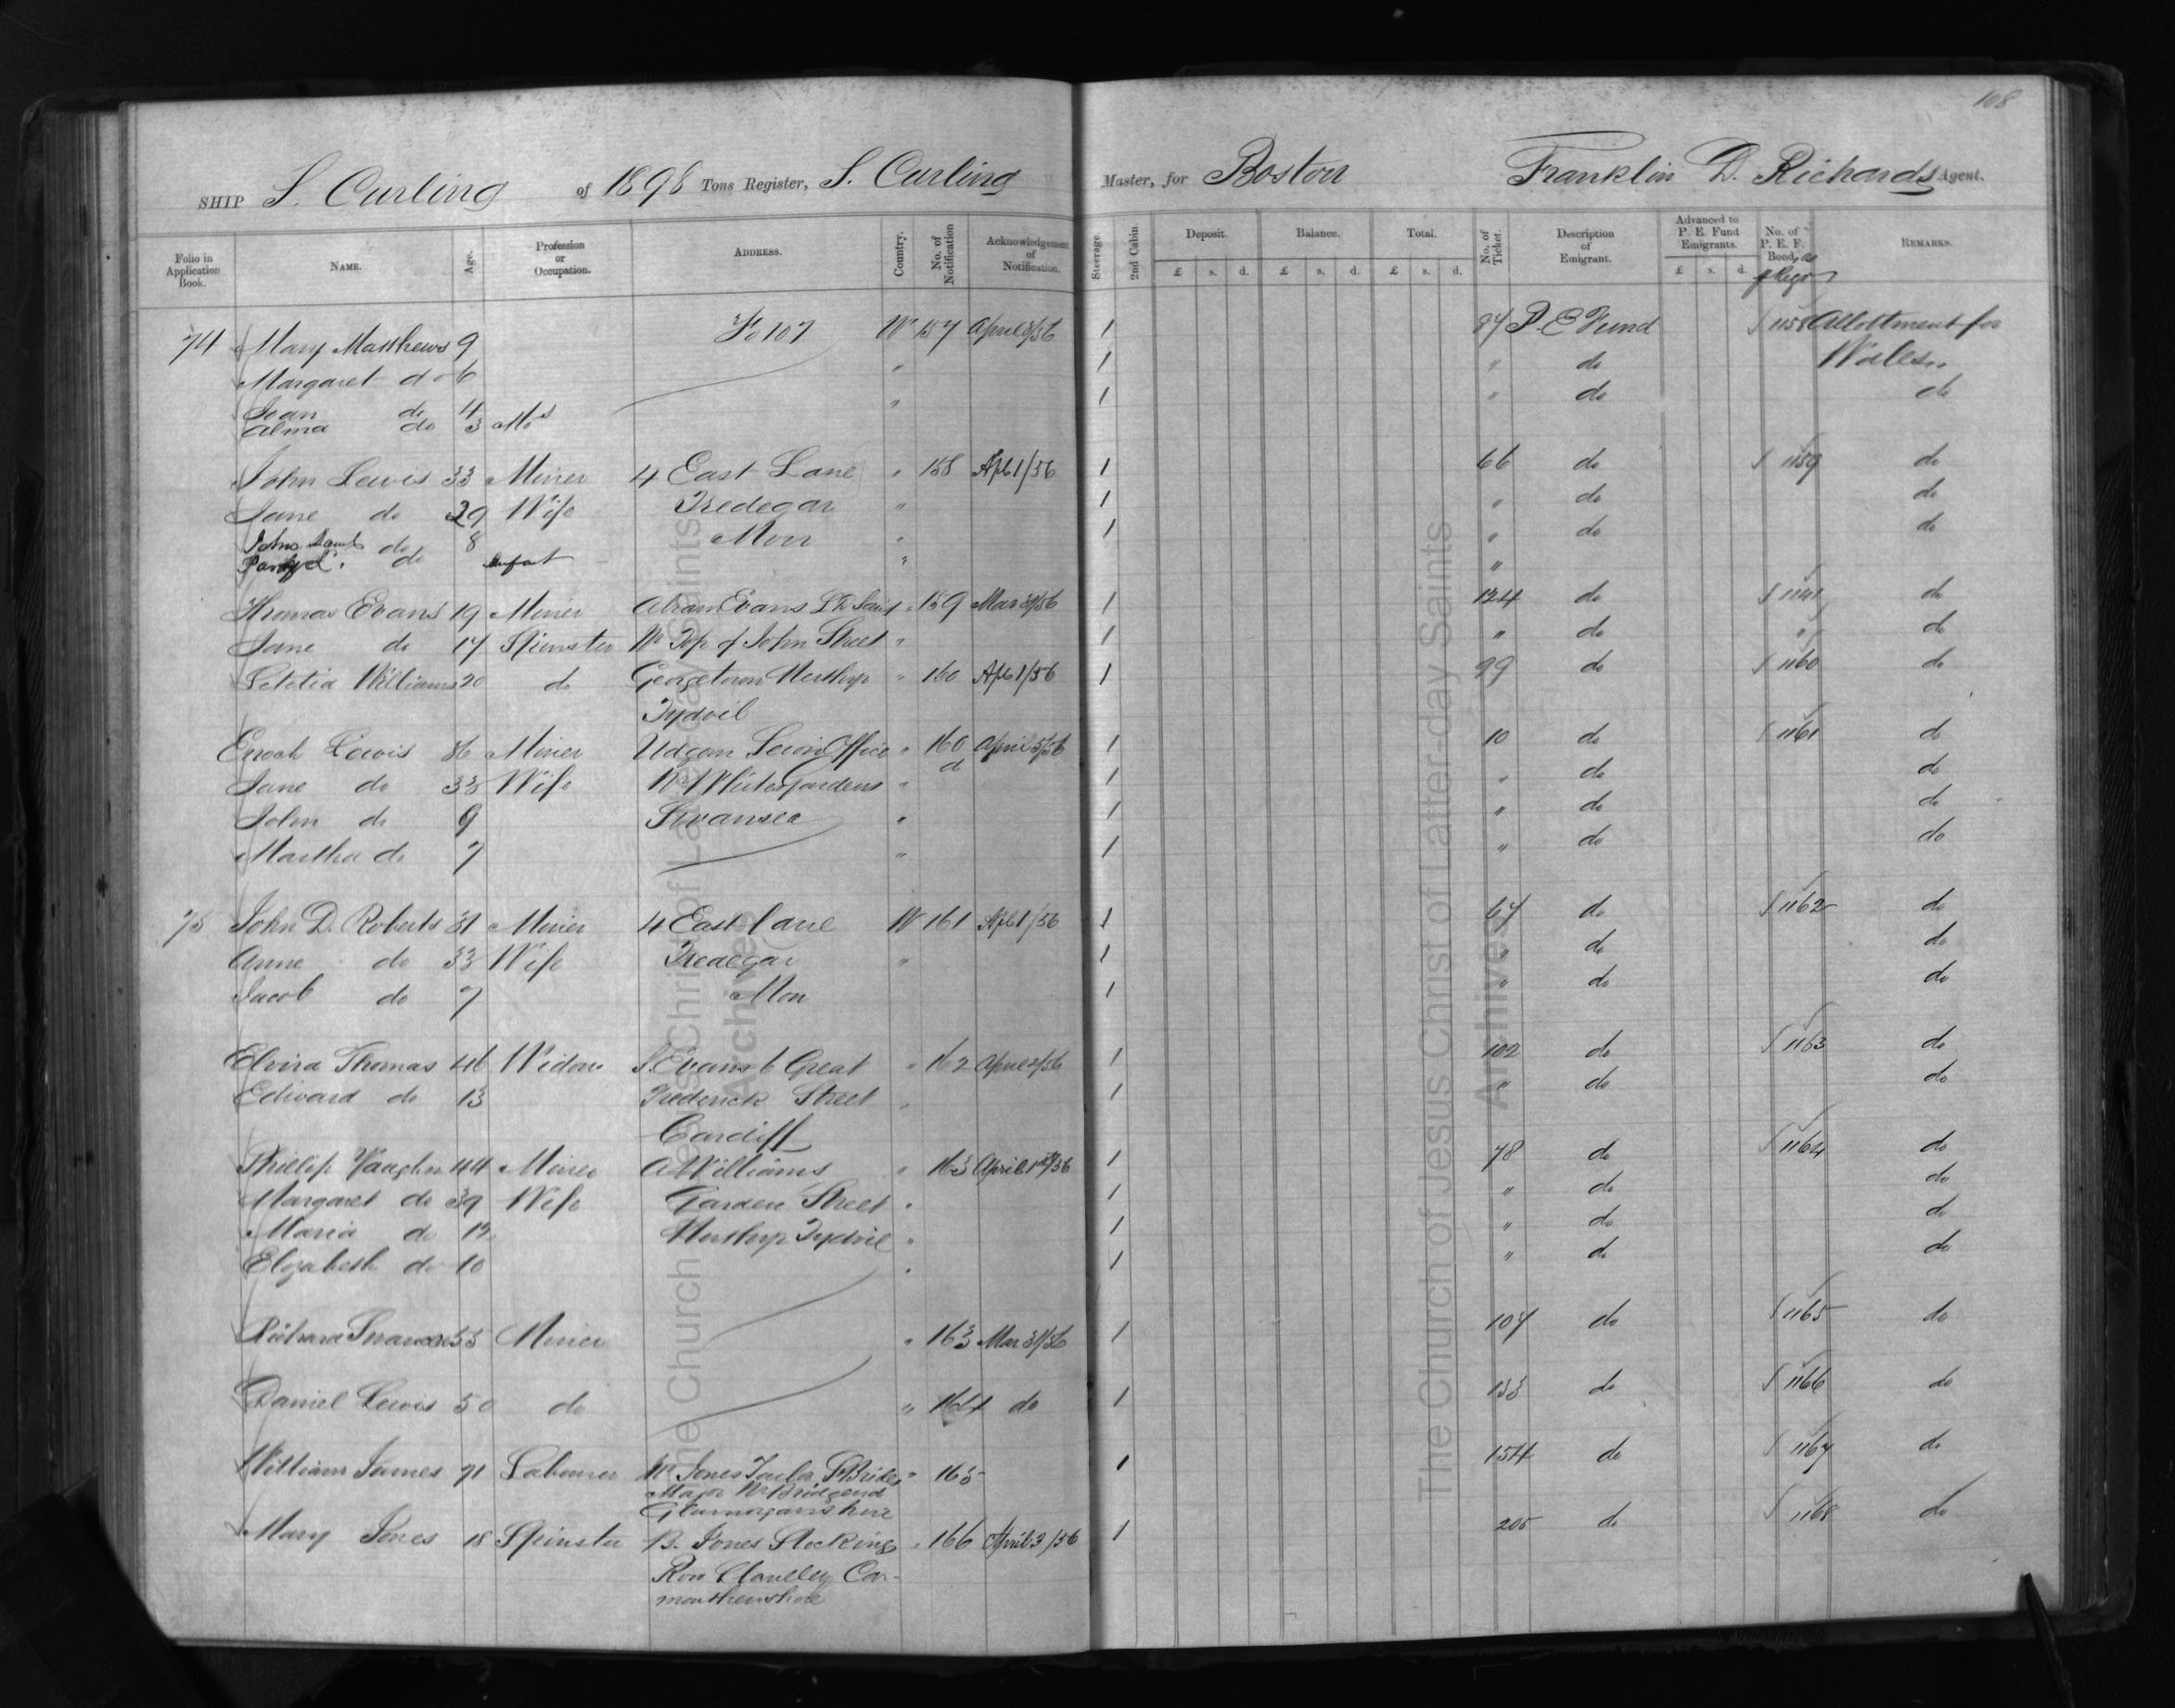 108
SHIP S. Curling of 1898 Tons Register, S. Curling Master, for Boston Franklin D. Richards Agent.
Folio in Application Book. NAME. Age. Profession or Occupation. ADDRESS. Country. No. of Notification Acknowledgement of Notification. Steerage. 2nd Cabin. Deposit. Balance. Total. No. of Ticket. Description of Emigrant. Advanced to P. E. Fund Emigrants. No. of P. E. F. Bond, REMARKS.
£ s. d. £ s. d. £ s. d. £ s. d.
74 Mary Matthews 9 Fo 107 W 157 April 8/56 1 84 P. E Fund 1158 Allottment for
Margaret do 6 " 1 " do Wales
Joan do 4 " 1 " do do
Alma do 3
John Lewis 33 Miner 4 East Lane " 158 Apl 1/56 1 66 do 1159 do
Jane do 29 Wife Tredegar " 1 " do do
John Saml do 8 Mon " 1 " do do
do Infant " "
Thomas Evans 19 Miner Abram Evans " 159 Mar 31/56 1 124 do 1141 do
Jane do 17 Spinster Nr Top of John Street " 1 " do " do
Letetia Williams 20 do Georgetown Merthyr " 160 Apl 1/56 1 99 do 1160 do
Tydvil
Enoch Lewis 36 Miner Udgorn Seion Office " 160 April 5/56 1 10 do 1161 do
a
Jane do 33 Wife Gardens " 1 " do do
John do 9 Swansea " 1 " do do
Martha do 7 " 1 " do do
75 John D. Roberts 31 Miner 4 East Lane W 161 Apl 1/56 1 67 do 1162 do
Anne do 33 Wife Tredegar " 1 " do do
Jacob do 7 Mon 1 " do do
Elvira Thomas 46 Widow S. Evans 6 Great " 162 April 2/56 1 102 do 1163 do
Edward do 13 Frederick Street " 1 " do do
Cardiff
Phillip Vaughn 44 Miner A Williams " 163 April 1st/56 1 78 do 1164 do
Margaret do 39 Wife Garden Street " 1 " do do
Maria do 12 Merthyr Tydvil " 1 " do do
Elizabeth do 10 " 1 " do do
Richard 55 Miner " 163 Mar 31/56 1 107 do 1165 do
Daniel Lewis 50 do " 164 do 1 133 do 1166 do
William James 71 Labourer Mr Jones Tailor St Brides " 165 1 154 do 1167 do
Major Nr Bridgend
Glamorganshire
Mary Jones 18 Spinster B. Jones Stocking " 166 April 3/56 1 205 do 1168 do
Row Llanelly Car-
marthenshire
The Church of Jesus Christ of Latter-day Saints
Archives
The Church of Jesus Christ of Latter-day Saints
Archives